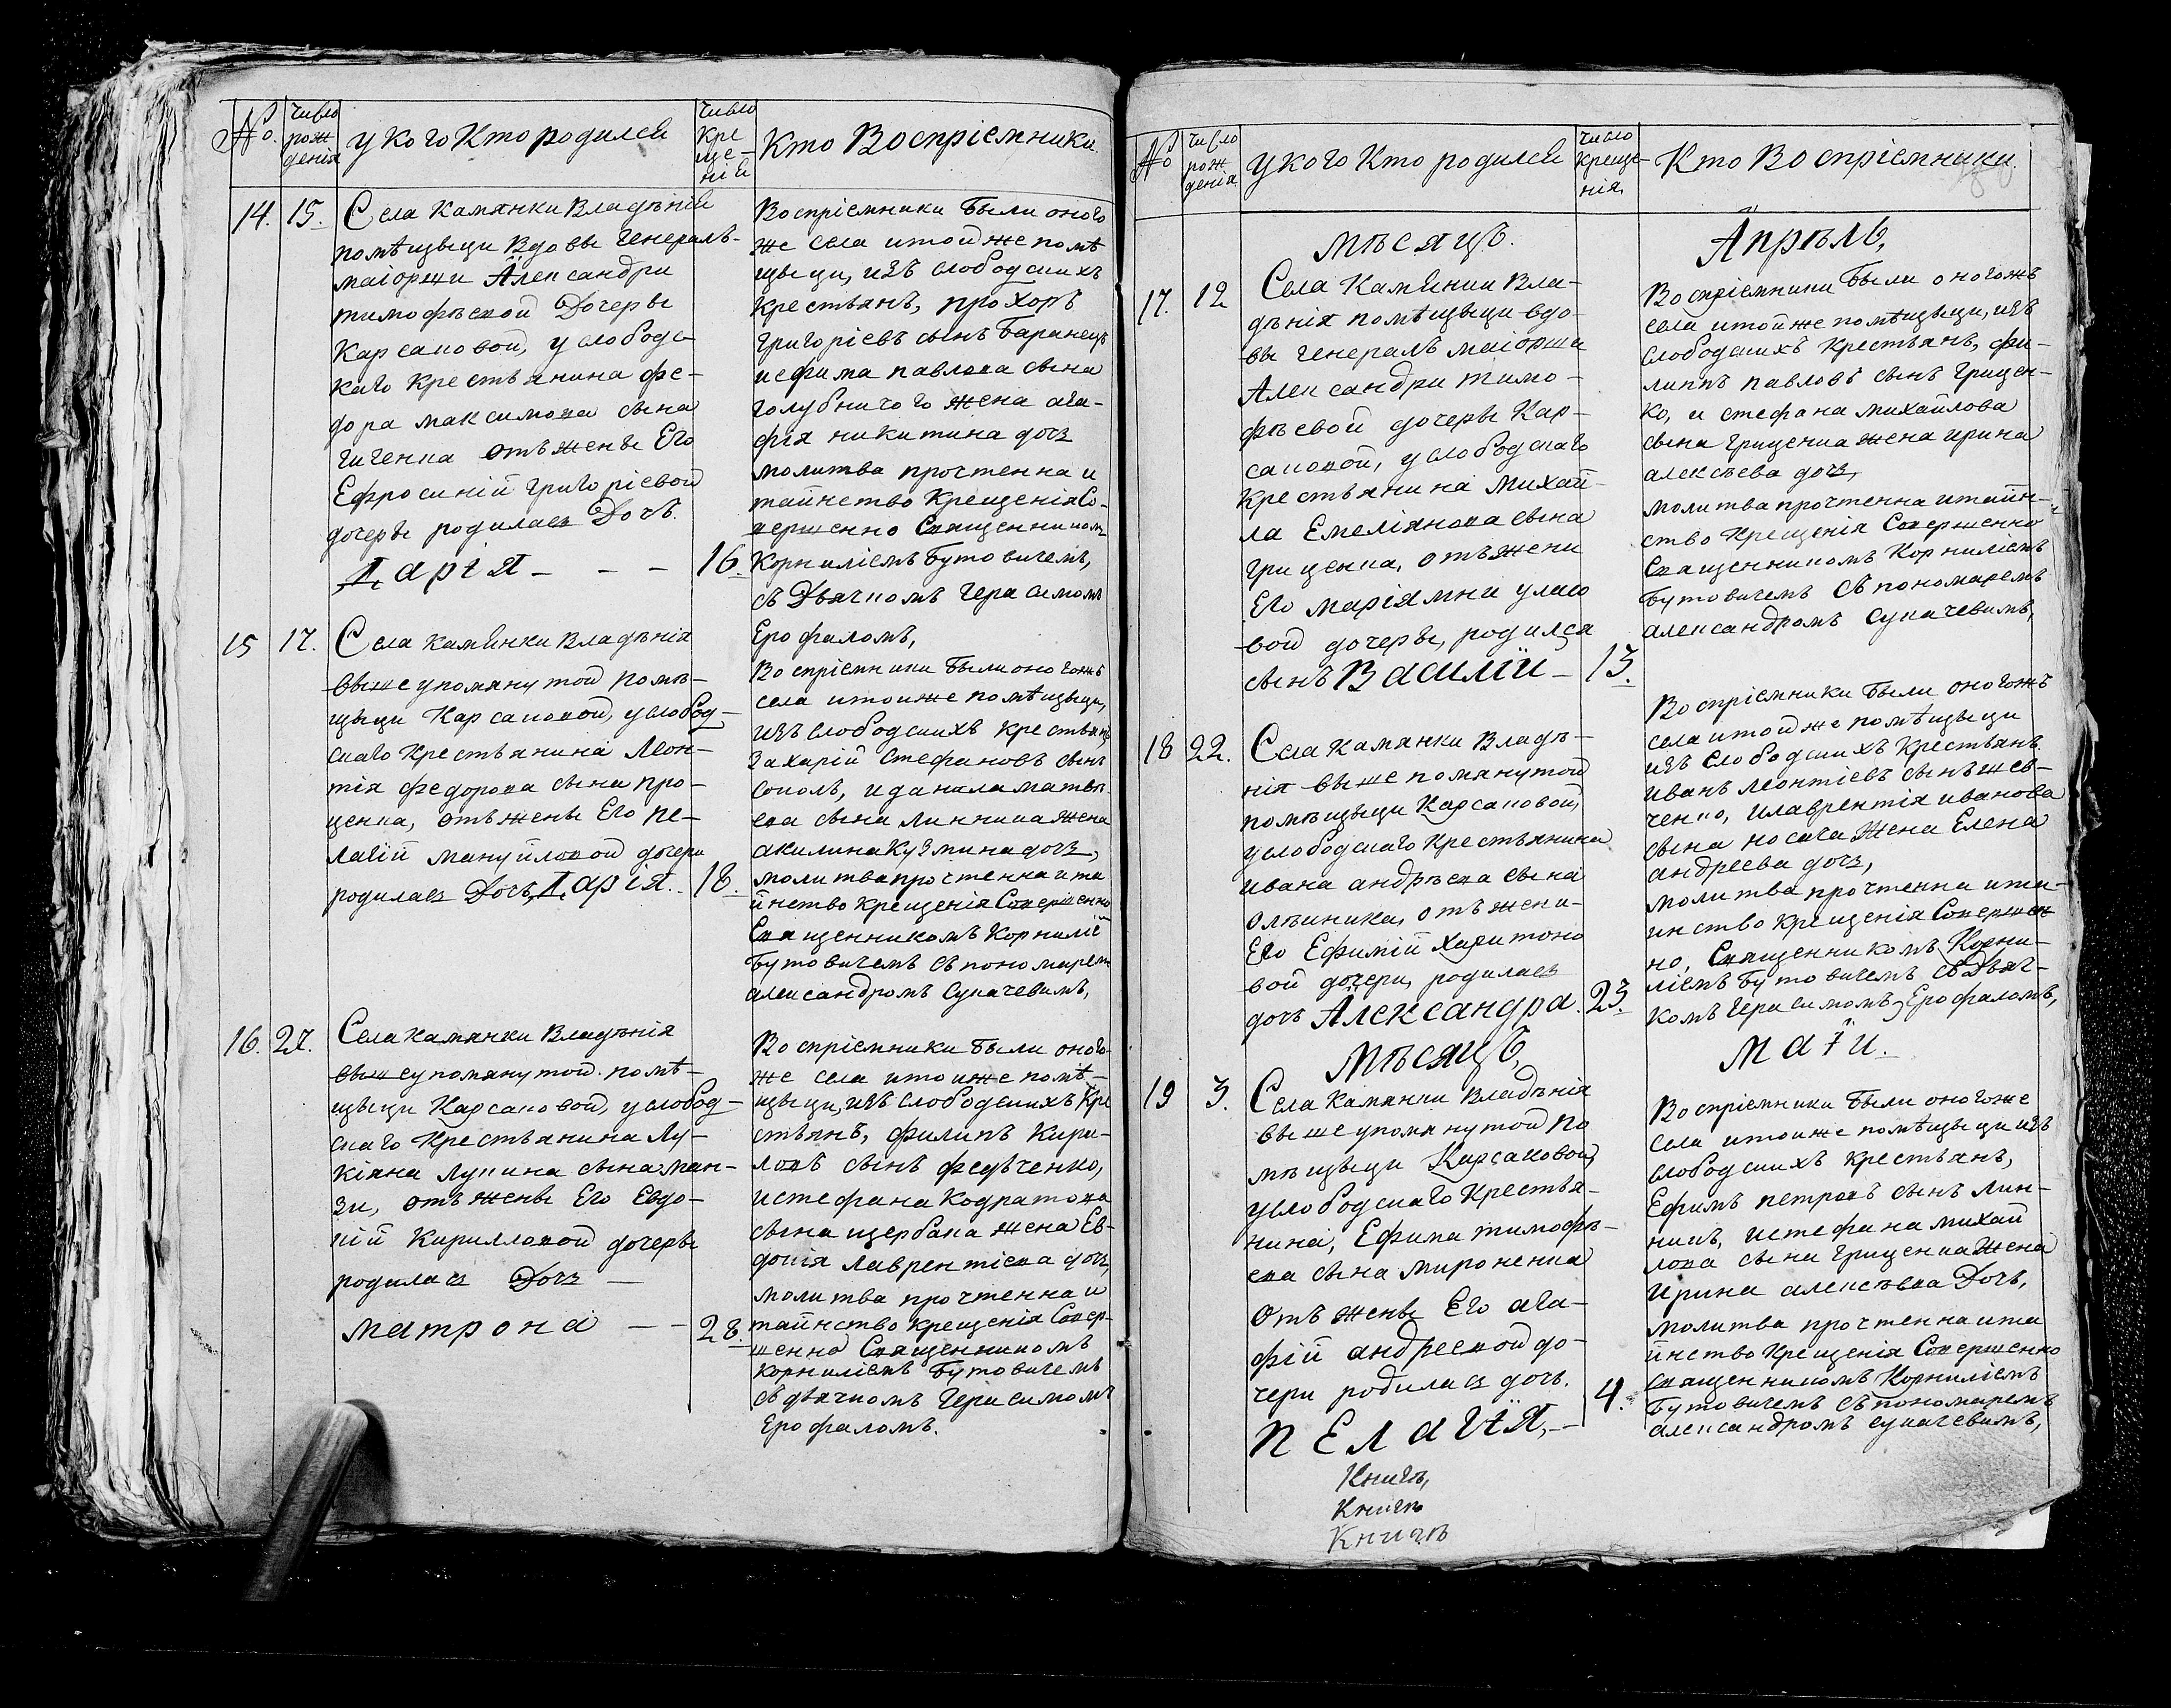 №
число рождения
у кого кто родился
число крещенiй
кто Воспрiемники
14.
15.
Села Камянки Владѣнiя
помѣщыци Вдовы генералъ-
маiорши Александри
тимофѣевой Дочеры
Карсаковой, у слободс
каго Крестьянина фе-
дора максимова сына
отъ жены Его
Ефросинiй григорiевой
дочеры родилась Дочь
Дарiя - - -
16.
Воспрiемники были оного
же села итойже помѣ
щыци, изъ слободскихъ
Крестьянъ, прохоръ
григорiевъ сынъ баранецъ
иефима павлова сына
голубничого жена ага-
фiя никитина дочь
молитва прочтенна и
таинство Крещенiя Со-
вершенно Священникомъ
Корнилiемъ Бутовичемъ,
съ Дьячкомъ герасимомъ
Ерофаломъ,
15
17.
Села камянки Владѣнiя
вышеупомянутой помѣ-
щыци Карсаковой, услобод-
скаго Крестьянина Леон-
тiя федорова сына про-
ценка, отъ жены Его пе-
лагiй мануйловой дочери
родилась Дочь Дарiя.
18.
Воспрiемники были оногожъ
села итоиже помѣщыци,
изъ слободскихъ крестьянъ
Захарiй Стефановъ сынъ
соколъ, и данила матвѣ
ева сына линника жена
акилина Кузмина дочь,
молитва прочтенна и та
инство крещенiя Совершенно
Священникомъ Корнилiе
бутовичемъ съ пономаремъ
александромъ сукачевимъ,
16.
27.
Села камянки Владѣнiя
вышеупомянутой помѣ-
щыци Карсаковой, услобод-
скаго Крестьянина Лу-
кiяна Лукина сына ман-
зи, отъ жены Его Евдо-
кiй Кирилловой дочеры
родилась Дочь —
матрона - -
28.
Воспрiемники были оного-
же села итоиже помѣ-
щыци, изъ слободскихъ Кре
стьянъ, филипъ Кири-
ловъ сынъ федѣченко,
истефана Кодратова
сына щербака жена Ев-
докiя лаврентiева дочь,
молитва прочтенна и
таинство крещенiя Совер-
шенно Священникомъ
корнилiемъ бутовичемъ
съ дячкомъ герасимомъ
Ерофаломъ.
№
число рожденiя
у кого кто родился
число крещенiя
Кто Воспрiемники.
мѣсяцъ. Апрѣль,
17.
12
Села Камянки Вла-
дѣнiя помѣщыци вдо-
вы генералъ маiорши
Александри тимо-
фѣевой дочеры Кар-
саковой, услободскаго
крестьянина михай-
ла Емелiянова сына
гриценка, отъ жени
Его марiямни уласо
вой дочеры, родился
сынъ Василiй -
13.
Воспрiемники были оногожъ
села итойже помѣщыци, изъ
слободскихъ крестьянъ, фи-
липъ павловъ сынъ грицен-
ко, и стефана михайлова
сына гриценка жена ирина
алексѣева дочь,
молитва прочтенна и таин-
ство Крещенiя Совершенно
Священникомъ Корнилiемъ
Бутовичемъ съ пономаремъ
александромъ Сукачевимъ,
18
22.
Села камянки владѣ-
нiя вышепомянутой
помѣщыци Карсаковой,
услободскаго крестьянина
ивана андрѣева сына
олѣиника, отъ жени-
Его Ефимiй харитоно
вой дочери, родилась
дочь Александра.
23.
Воспрiемники были оногожъ
села итойже помѣщыци
изъ Слободскихъ Крестьянъ
иванъ леонтiевъ сынъ шев-
ченко, илаврентiя иванова
сына носача Жена Елена
андреева дочь,
молитва прочтенна ита-
инство крещенiя Совершен
но, Священникомъ Корни-
лiемъ Бутовичемъ съ Дьяч-
комъ герасимомъ Ерофаломъ,
мѣсяцъ, маiи.
19
3.
Села камянки Владѣнiя
вышеупомянутой по
мѣщыци Карсаковой,
услободскаго крестья-
нина, Ефима тимофѣ-
ева сына мироненка
отъ жены Его ага-
фiй андреевой до-
чери родилась дочь.
пЕлагiя, -
4.
Воспрiемники были оногоже
села итоиже помѣщыци изъ
слободскихъ крестьянъ,
Ефимъ петровъ сынъ лин-
никъ, истефана михай
лова сына гриценка Жена
ирина алексѣева Дочь,
молитва прочтенна ита
инство Крещенiя Совершенно
священникомъ Корнилiемъ
Бутовичемъ съ пономаремъ
александромъ сукачевимъ,
Книгъ,
Книгъ
Книгъ